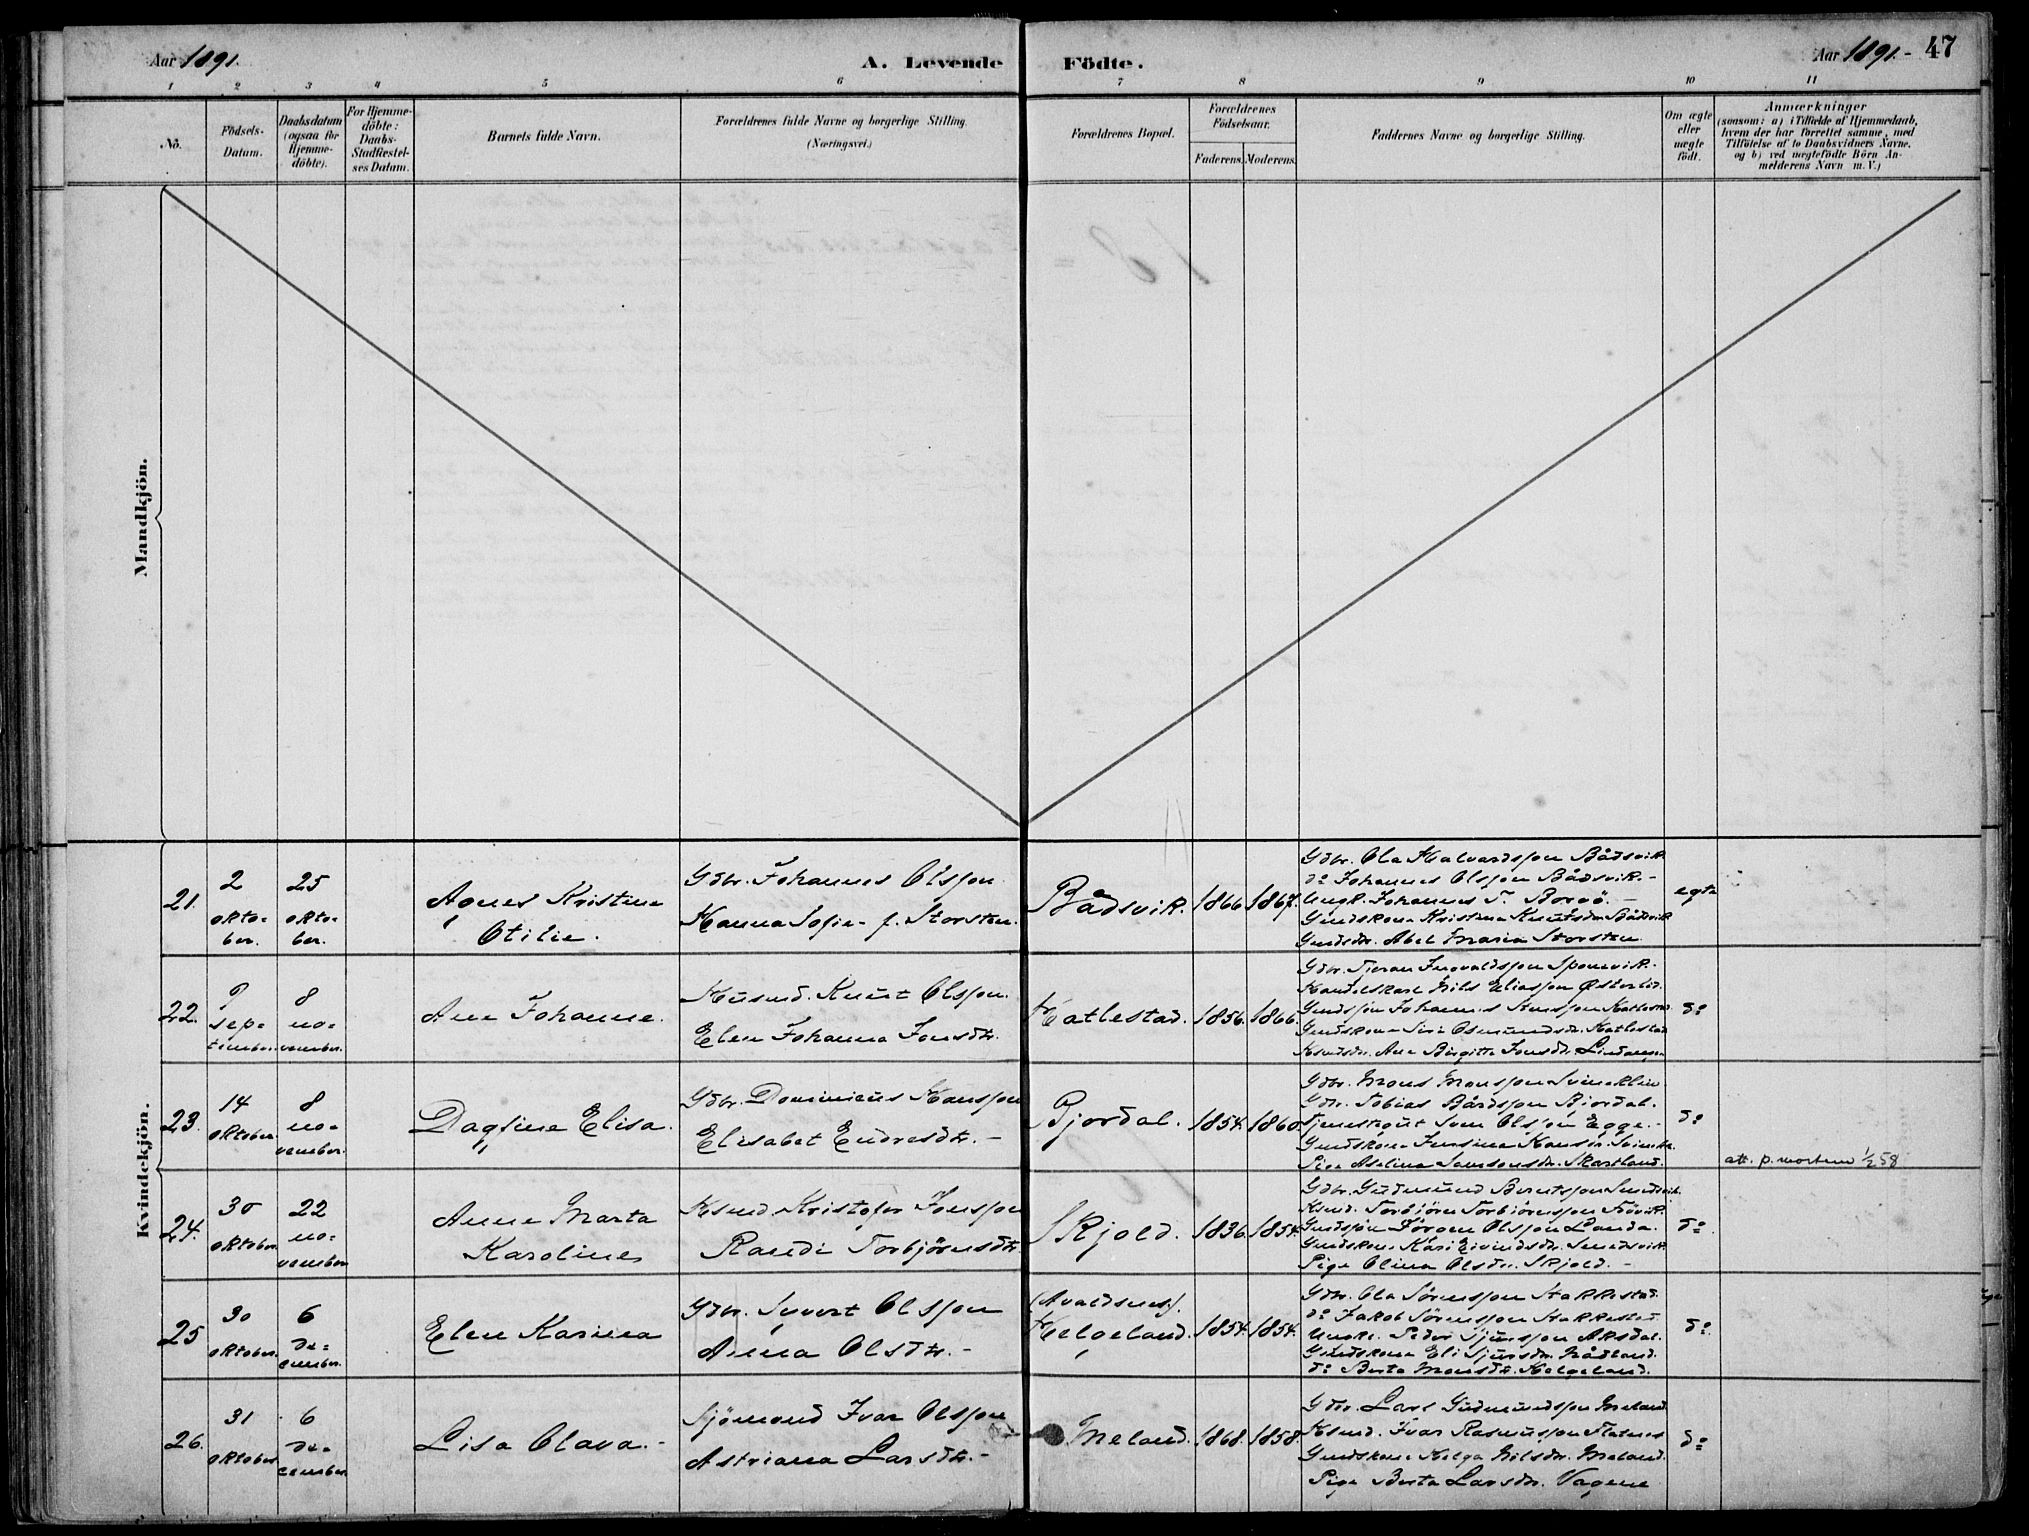 Aar 1891.
A. Levende
Födte.
Aar 1891.- 47
1 2 3 4 5 6 7 8 9 10 11
No.
Födsels-
Datum.
Daabsdatum
(ogsaa for
Hjemme-
döbte).
For Hjemme-
döbte:
Daabs-
Stadfæstel-
ses Datum.
Barnets fulde Navn.
Forældrenes fulde Navne og borgerlige Stilling.
(Næringsvei.)
Forældrenes Bopæl.
Forældrenes
Födselsaar.
Faderens. Moderens.
Faddernes Navne og borgerlige Stilling.
Om ægte
eller
uægte
födt.
Anmærkninger
(saasom: a) i Tilfælde af Hjemmedaab,
hvem der har forrettet samme, med
Tilföielse af to Daabsvidners Navne.
og b) ved uægtefödte Börn An-
melderens Navn m. V.)
Mandkjön.
Kvindekjön.
21.
2
okto-
ber.
25
okto-
ber.
Agnes Kristine
Otilie.
Gdbr. Johannes Olsson
Hanna Sofie f. Storsten.
Bådsvik.
1866 1867.
Gdbr. Ola Halvardsson Bådsvik.
do Johannes Olsson Bådsvik.-
Ungk. Johannes T. Borgö.-
Gmdskone Kristina Knutsdr. Bådsvik
Gmdsdr. Abel Maria Storsten.
egte
22.
9
sep-
tember.
8
no-
vember.
Ane Johanne.
Husmd. Knut Olsson.
Elen Johanna Jonsdtr.
Hatlestad.
1856. 1866.
Handelskarl Nils Eliasson Østerlid.
do
23.
14
oktober.
8
no-
vember.
Dagfine Elisa.
Gdbr. Dominicus Hansson
Elisabet Endresdtr.-
Bjordal.
1854. 1860.
Gdbr. Mons Monsson
Gdbr. Tobias Bårdsson Bjordal.
do
att. p. mortem 1/2 58
24.
30
oktober.
22
no-
vember.
Anne Marta
Karoline
Husmd. Kristofer Jonsson
Randi Torbjörnsdtr.
Skjold.
1836. 1854.
Gdbr. Gudmund Berntsson
Husmd. Torbjörn Torbjörnsson
Gmdssön Jörgen Olsson Landa.
Gmdskone Kari Eivindsdr.
Pige Olina Olsdr. Skjold.-
do
25
30
oktober.
6
de-
cember.
Elen Karina
Gdbr. Syvert Olsson
Anna Olsdtr.-
(Avaldsnes).
Helgeland.
1854. 1854.
Gdbr. Ola Sörensson Stakkestad.
do Jakob Sörensson Stakkestad
Ungk. Peder Sjursson Aksdal.
Gmdskone Eli Sjursdr. Nådland.
do Berta Monsdtr. Helgeland.
do
26.
31
oktober
6
de-
cember.
Lisa Olava.-
Sjömand Ivar Olsson
Astriana Larsdtr.-
Meland.
1868. 1858.
Gdbr. Lars Gudmundsson Meland
Husmd. Ivar Rasmusson Flatnes
Gmdskone Helga Nilsdr. Meland.
Pige Berta Larsdr. Vagene
do